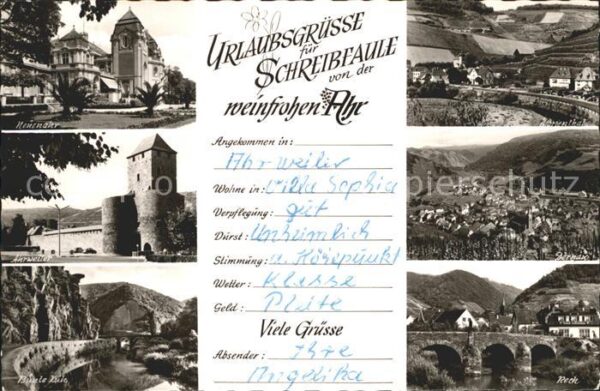 URLAUBSGRÜSSE
für
SCHREIBFAULE
von der
weinfrohen Ahr
Angekommen in:
Ahrweiler
Wohne in: Villa Sophia
Verpflegung: gut
Durst: Unheimlich
Stimmung: a. Höhepunkt
Wetter: Klasse
Geld: Pleite
Viele Grüsse
Absender: Ihre
Angelika
Neuenahr
Ahrweiler
Bunte Kuh
Dernau
Rech